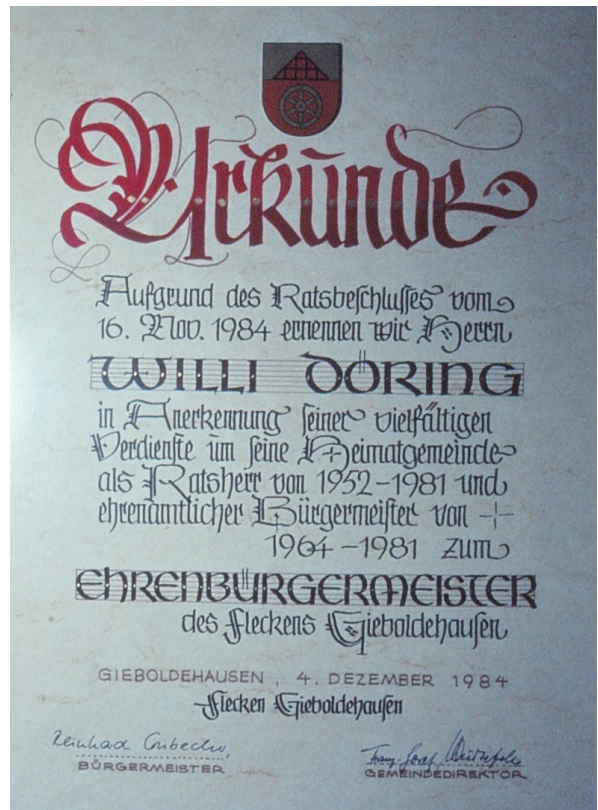 Urkunde
Aufgrund des Ratsbeschlusses vom
16. Nov. 1984 ernennen wir Herrn
WILLI DÖRING
in Anerkennung seiner vielfältigen
Verdienste um seine Heimatgemeinde
als Ratsherr von 1952-1981 und
ehrenamtlicher Bürgermeister von
1964-1981 zum
EHRENBÜRGERMEISTER
des Fleckens Gieboldehausen
GIEBOLDEHAUSEN, 4. DEZEMBER 1984
Flecken Gieboldehausen
Reinhad
Franz-Josef
BÜRGERMEISTER
GEMEINDEDIREKTOR